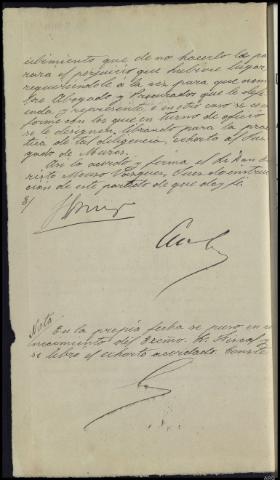 cibimiento que de no hacerlo les pa
rará el perjuicio que hubiere lugar,
requiriéndole á la vez para que nom
bre Abogado y Procurador que le defi
enda y represente ó en otro caso se con
forme con los que en turno de oficio
se le designen, librando para la prac
tica de tal diligencia, exhorto al Juz
gado de Muros.
Así lo acordó y firma el Sr Don
Moure Vazquez, Juez de instruc
ción de este partido de que doy fé.
Nota
En la propia fecha se puso en co
nocimiento del Excmo. Sr. Fiscal y
se libró el exhorto acordado. Consta